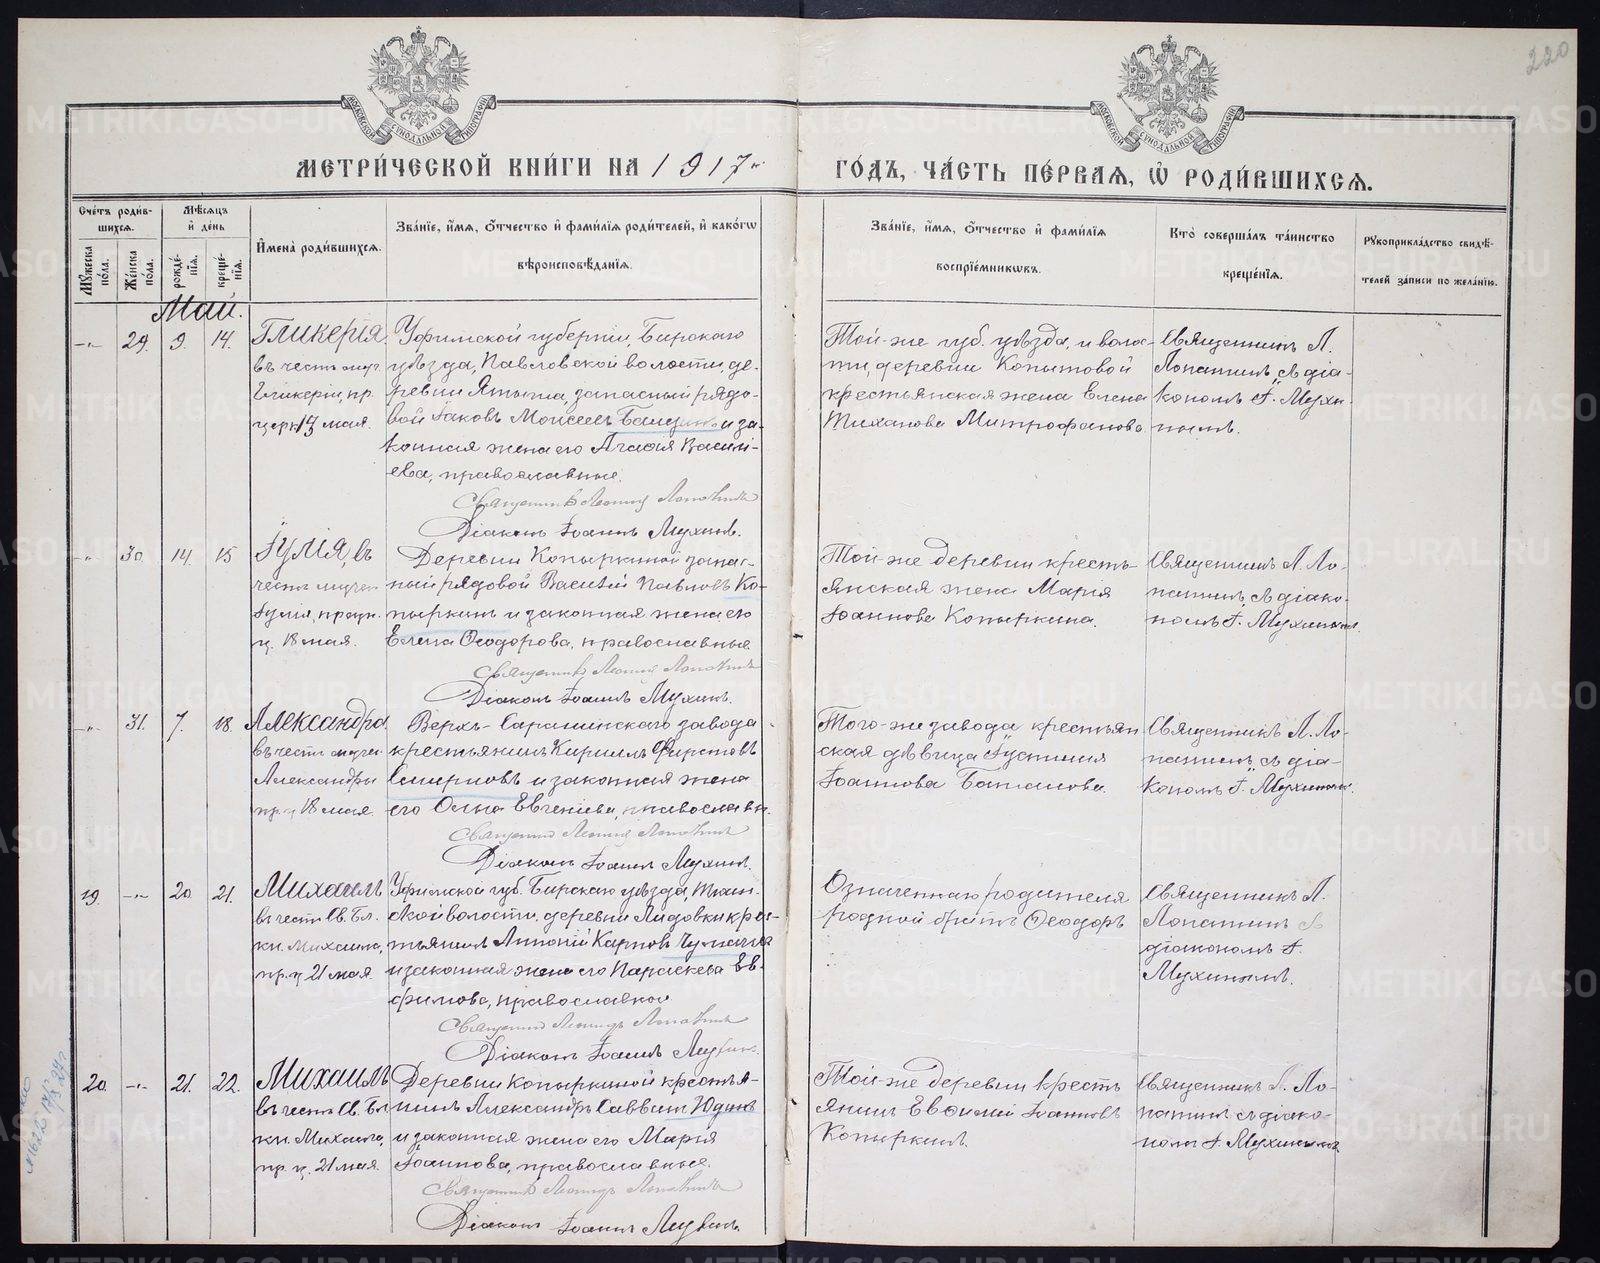 220
МЕТРИ́ЧЕСКОЙ КНИ́ГИ НА 1917й
ГО́ДЪ, ЧА́СТЬ ПЕ́РВАЯ, Ѡ҆ РОДИ́ВШИХСЯ.
Сче́тъ роди́в-
шихся.
Мѣсяцъ
и҆ де́нь
И҆мена̀ роди́вшихся.
Зва́нїе, и҆́мя, ѻ҆́тчество и҆ фами́лїя роди́телей, и҆ како́гѡ
вѣроисповѣ́данїя.
Зва́нїе, и҆́мя, ѻ҆́тчество и҆ фами́лїя
воспрїе́мниковъ.
Кто̀ соверша́лъ та́инство
креще́нїя.
Рукоприкла́дство свидѣ́-
телей за́писи по жела́нїю.
Мꙋ́жеска по́ла.
Же́нска по́ла.
рожде́-
нїя.
креще́-
нїя.
Май.
-„- 29. 9. 14.
Гликерія
въ честь муч.
Гликеріи, пр.
церк 13 мая.
Уфимской губерніи, Бирскаго
уѣзда, Павловской волости, де-
ревни запасный рядо-
вой Іаковъ Моисеевъ и за-
конная жена его Агафія Василі-
ева, православные.
Священникъ Леонид Лопатинъ
Діаконъ Іоаннъ Мухинъ.
Той-же губ. уѣзда, и воло-
сти, деревни Копытовой
крестьянская жена Елена
Тиханова Митрофанова
Священникъ Л.
Лопатинъ съ діа-
кономъ І. Мухи-
нымъ.
-„- 30. 14. 15
Іулія, въ
честь мучен.
Іуліи, празд.
ц. 18 мая.
Деревни Копыркиной запас-
ный рядовой Василій Павловъ Ко-
пыркинъ и законная жена его
Елена Ѳеодорова, православные
Священникъ Леонид Лопатинъ
Діаконъ Іоаннъ Мухинъ.
Той-же деревни кресть-
янская жена Марія
Іоаннова Копыркина.
Священникъ Л. Ло-
патинъ, съ діако-
номъ І. Мухинымъ.
-„- 31. 7. 18.
Александра
въ честь мучен.
Александры
пр ц 18 мая.
Верхъ-Сарашинскаго завода
крестьянинъ Кириллъ Фирстовъ
Смирновъ и законная жена
его Ольга Евгеніева, православн.
Священник Леонид Лопатинъ
Діаконъ Іоаннъ Мухинъ.
Того-же завода крестьян
ская дѣвица Іустинія
Іоаннова Баташова.
Священникъ Л. Ло-
патинъ съ діа-
кономъ І. Мухинымъ.
19. -„- 20. 21.
Михаилъ
въ честь Св. Бл.
кн. Михаила,
пр. ц 21 мая.
Уфимской губ. Бирскаго уѣзда,
ской волости, деревни кре-
стьянинъ Антоній Карповъ
и законная жена его Параскева Ев-
фимова, православные
Священник Леонидъ Лопатинъ
Діаконъ Іоаннъ Мухин.
Означеннаго родителя
родной братъ Ѳеодоръ
Священникъ Л.
Лопатинъ съ
діакономъ І.
Мухинымъ.
20. -„- 21. 22.
Михаилъ
въ честь Св. Бл
кн. Михаила,
пр. ц. 21 мая.
Деревни Копыркиной крестья-
нинъ Александръ Саввинъ Юдинъ
и законная жена его Марія
Іоаннова, православные.
Священникъ Леонидъ Лопатинъ
Діаконъ Іоаннъ Мухинъ.
Той-же деревни кресть
янинъ Евѳимій Іоанновъ
Копыркинъ.
Священникъ Л. Ло-
патинъ съ діако-
номъ І. Мухинымъ
METRIKI.GASO-URAL.RU